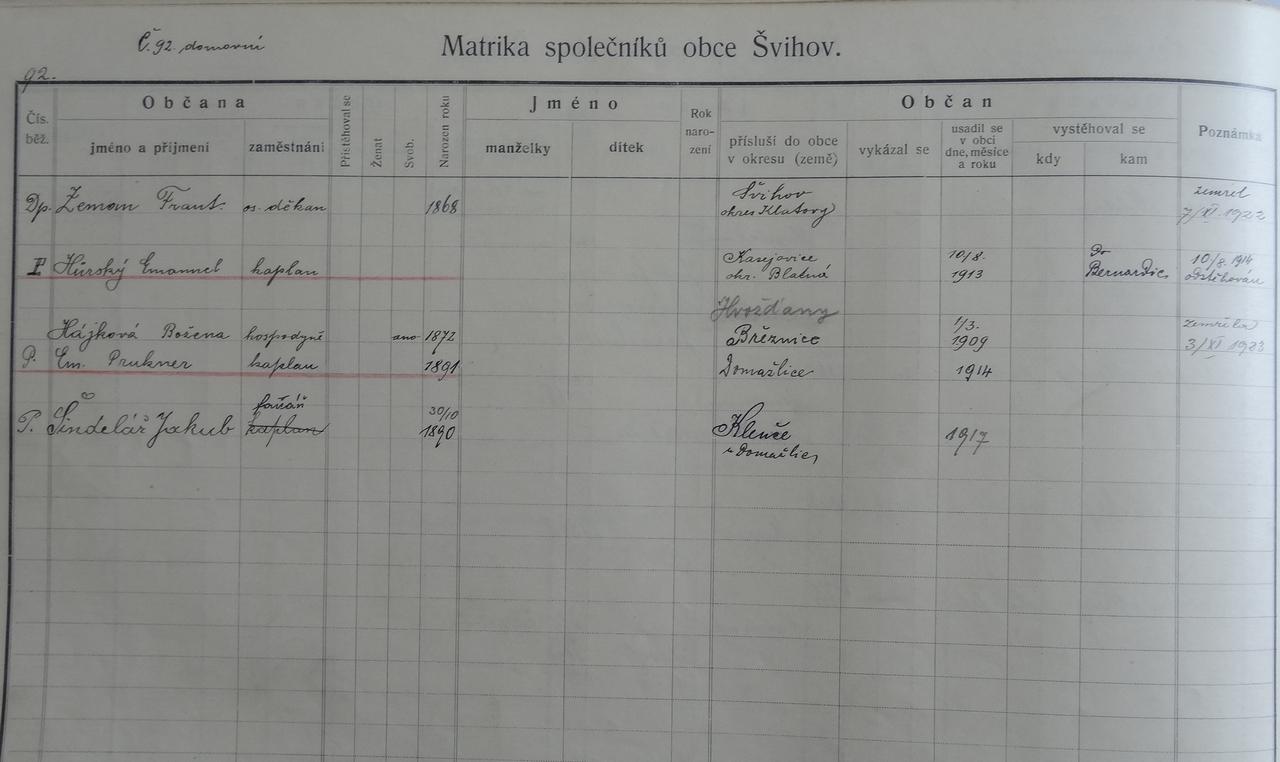 Č. 92. domovní
Matrika společníků obce Švihov.
92.
Čís. běž.
Občana
jméno a přijmení
zaměstnání
Přistěhoval se
Ženat
Svob.
Narozen roku
Jméno
manželky
dítek
Rok naro- zení
Občan
přísluší do obce v okresu (země)
vykázal se
usadil se v obci dne, měsíce a roku
vystěhoval se
kdy
kam
Poznámka
Dp. Zeman Frant. os. děkan 1868 Švihov okres Klatovy zemřel 7/XI. 1922
P Hůrský Emanuel kaplan Kasejovice okr. Blatná 10/8. 1913 Do Bernardic 10./8. 1914 odstěhován
Hvožďany
Hájková Božena hospodyně ano 1872 Březnice 1/3. 1909 zemřela 3/XI 1923
P. Em. Prukner kaplan 1891 Domažlice 1914
P. Šindelář Jakub farář kaplan 30/10 1890 Klenče u Domažlic 1917